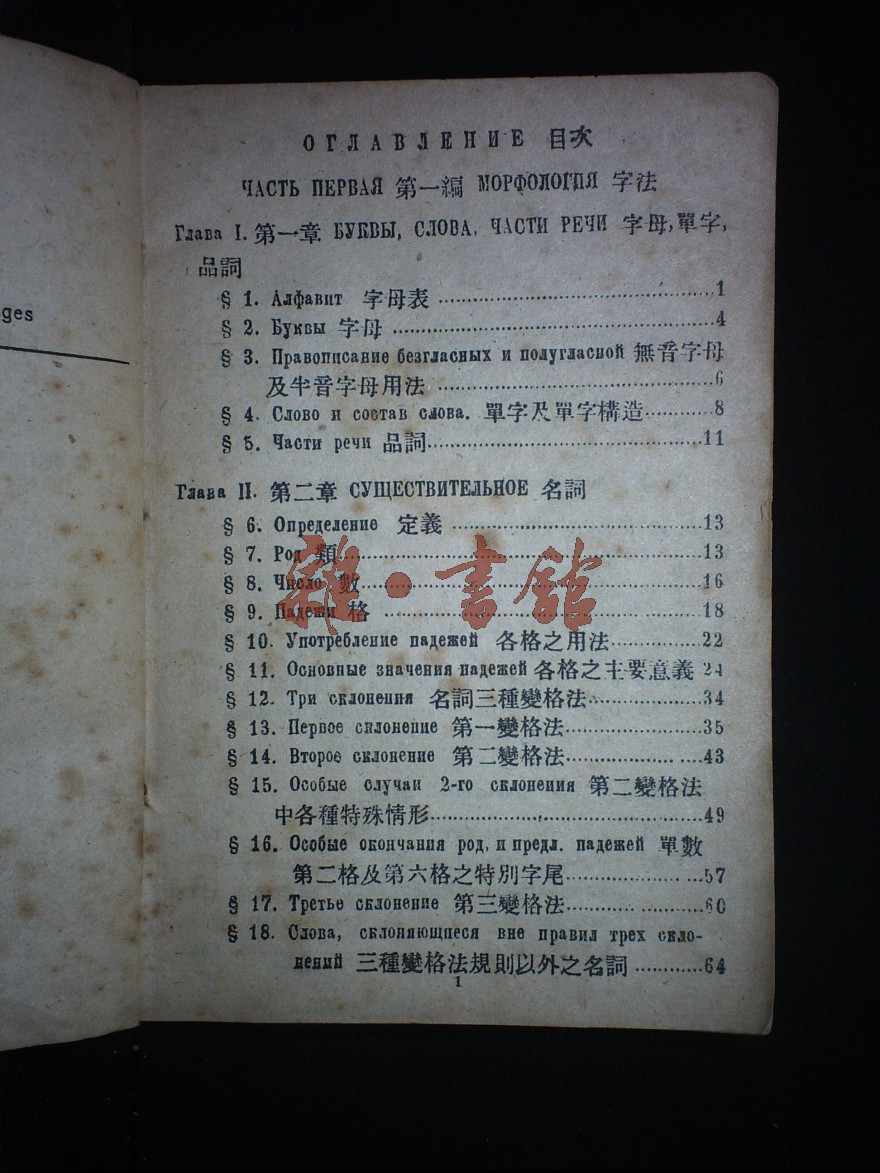 ges
ОГЛАВЛЕНИЕ 目次
ЧАСТЬ ПЕРВАЯ 第一編 МОРФОЛОГИЯ 字法
Глава I. 第一章 БУКВЫ, СЛОВА, ЧАСТИ РЕЧИ 字母,單字,
品詞
§ 1. Алфавит 字母表 ........................................1
§ 2. Буквы 字母 ................................................4
§ 3. Правописание безгласных и полугласной 無音字母
及半音字母用法 ........................................6
§ 4. Слово и состав слова. 單字及單字構造..........8
§ 5. Части речи 品詞........................................11
Глава II. 第二章 СУЩЕСТВИТЕЛЬНОЕ 名詞
§ 6. Определение 定義 ....................................13
§ 7. Род 類....................................................13
§ 8. Число 數..................................................16
§ 9. Падежи 格 ..............................................18
§ 10. Употребление падежей 各格之用法.............22
§ 11. Основные значения падежей 各格之主要意義 24
§ 12. Три склонения 名詞三種變格法.................34
§ 13. Первое склонение 第一變格法....................35
§ 14. Второе склонение 第二變格法....................43
§ 15. Особые случаи 2-го склонения 第二變格法
中各種特殊情形........................................49
§ 16. Особые окончания род. и предл. падежей 單數
第二格及第六格之特別字尾....................57
§ 17. Третье склонение 第三變格法....................60
§ 18. Слова, склоняющиеся вне правил трех скло-
нений 三種變格法規則以外之名詞 ............64
1
雜·書館